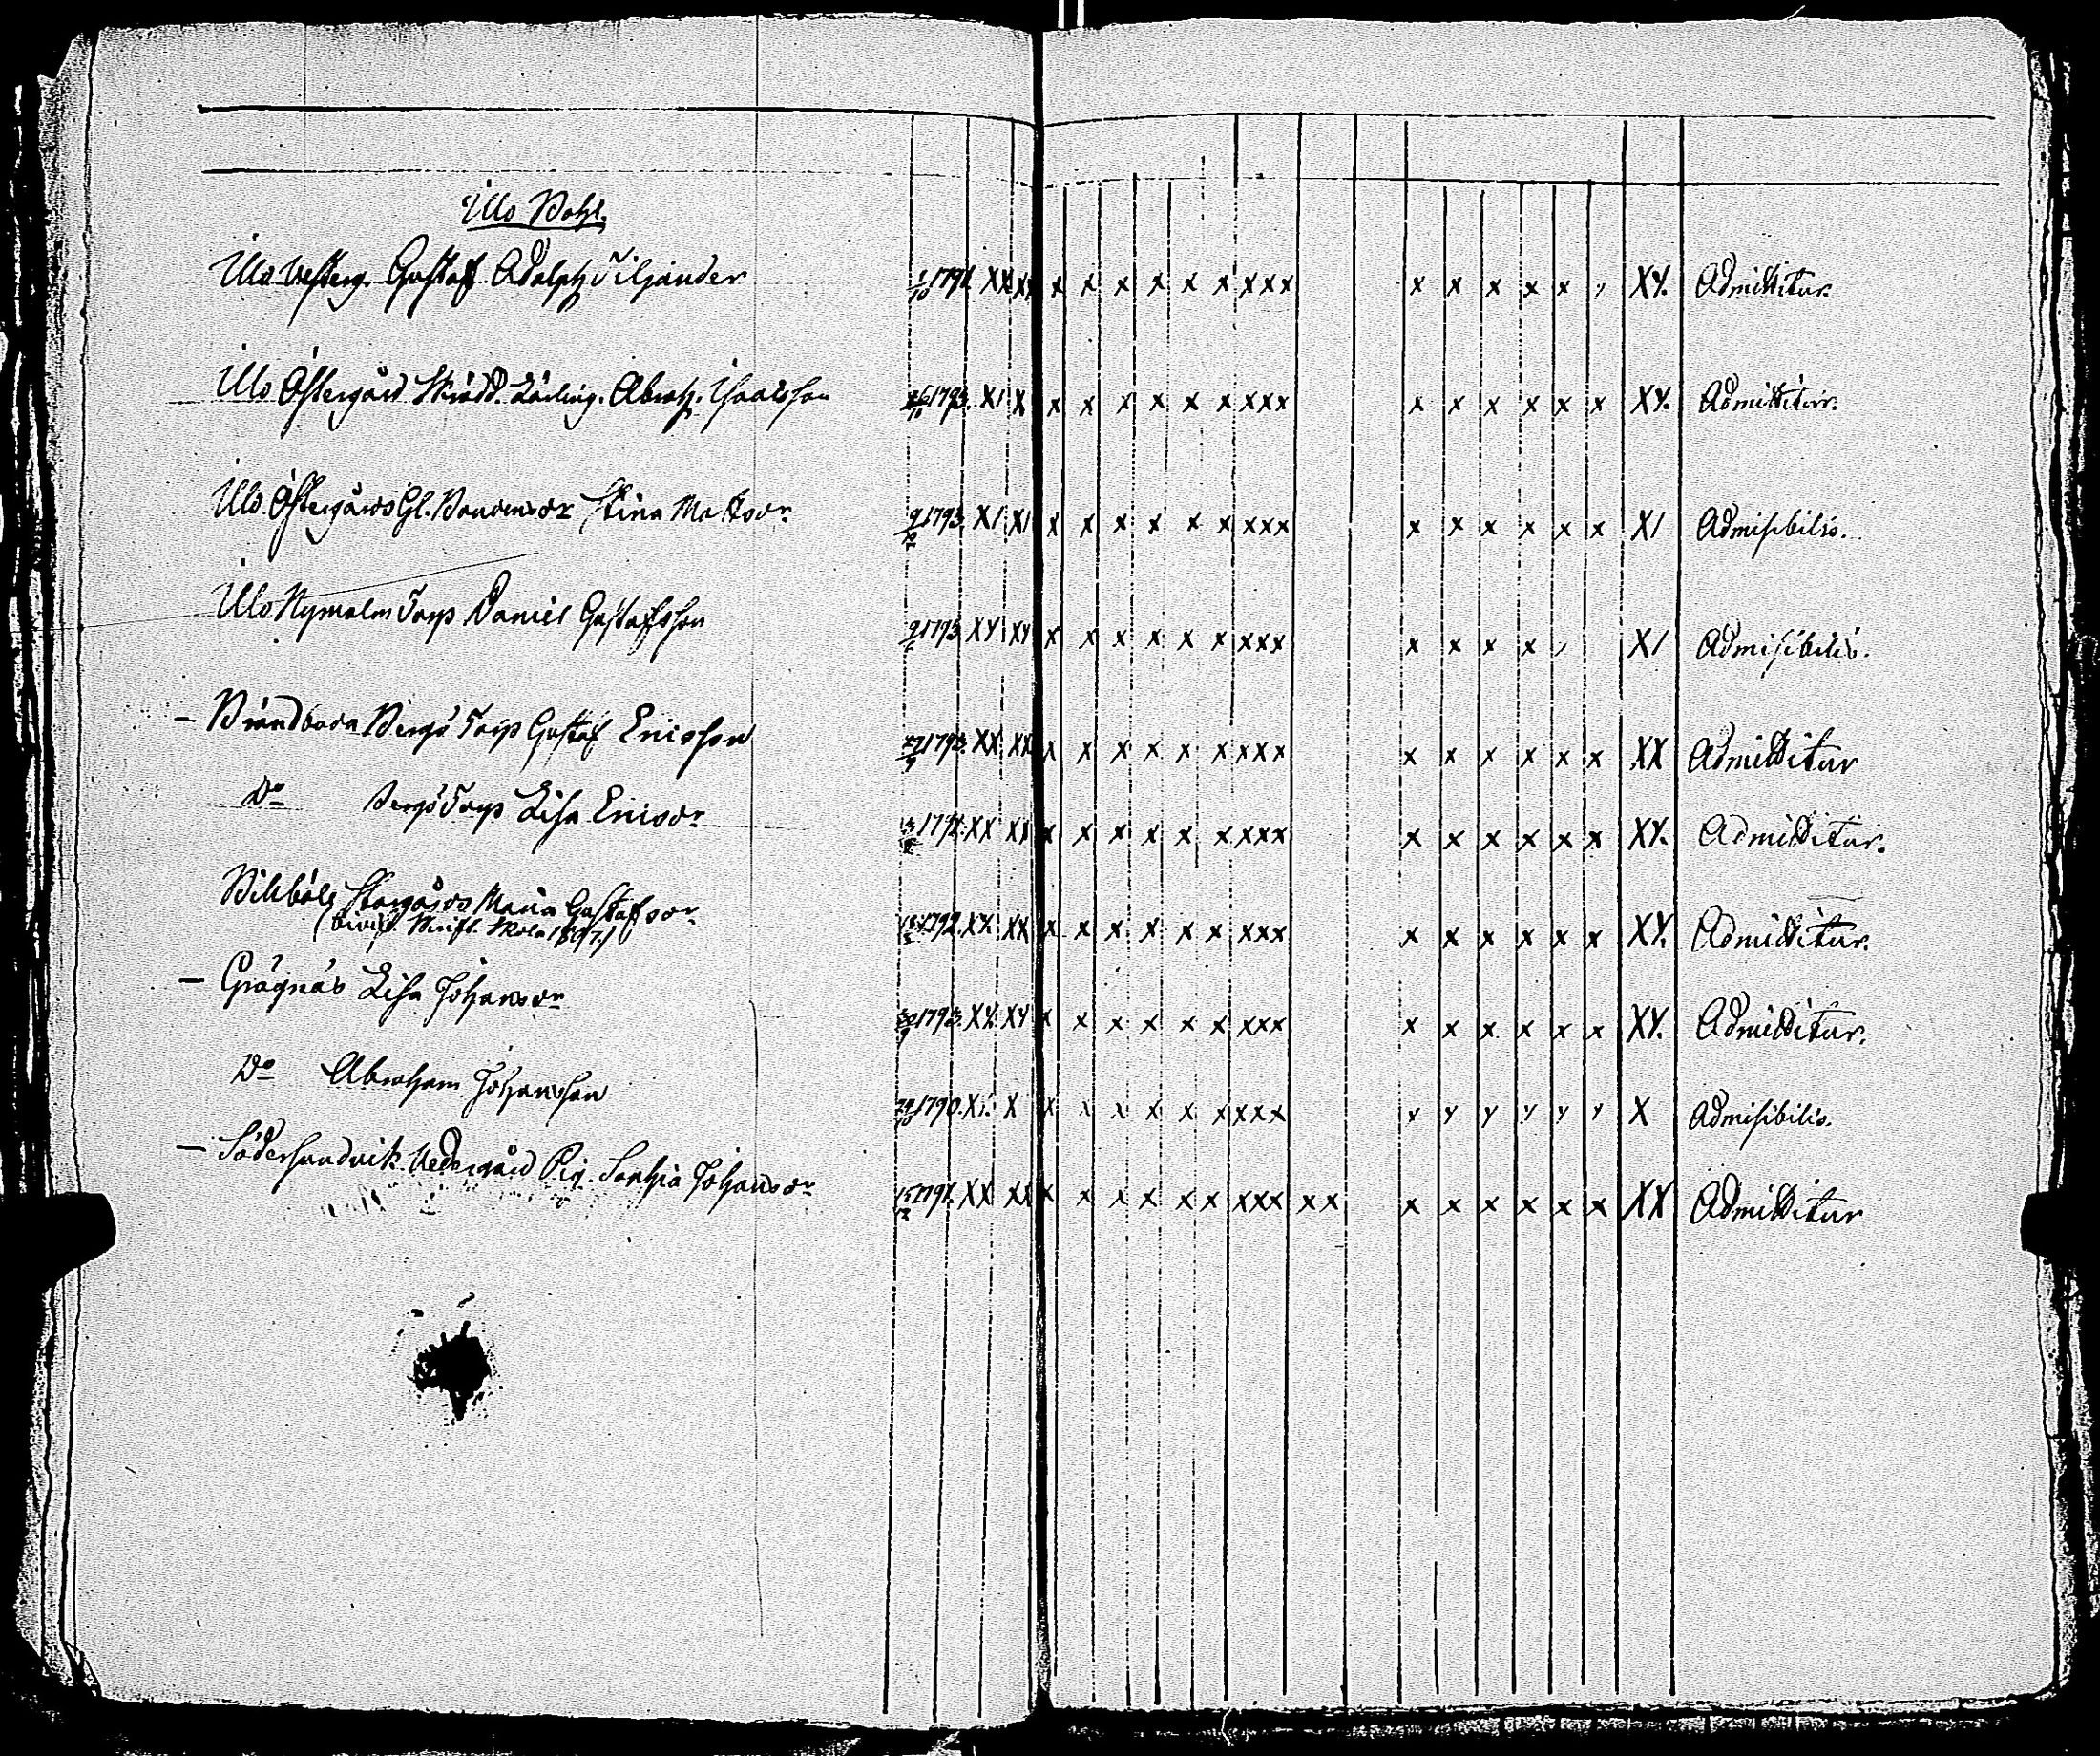 Ulo Vesterg. Gustaf Adolph Tiljander 1/10 1791. XX XX x x x x x x xxx x x x x x XX. Admittitur.
Ulo Östergård Skrädd. Lärling. Abrah. Isaacsson 1793. XI X x x x x x x xxx x x x x x x XX. Admittitur.
Ulo Östergårds Gl. Bondens dr Stina Matsdr 9/12 1793. XI XI x x x x x x xxx x x x x x x XI Admisibilis.
Ulo Nymalm Torp Daniel Gustafsson 1793. XX XX x x x x x x xxx x x x x XI Admisibilis.
– Brändboda Bergs Torp Gustaf Ericsson 27/9 1793. XX XX x x x x x x xxx x x x x x x XX Admittitur
Do Bergs Torp Lisa Ericsdr XX XX x x x x x x xxx x x x x x x XX. Admittitur.
Storgårds Maria Gustafsdr 1792. XX XX x x x x x x xxx x x x x x x XX. Admittitur.
– Grägnäs Lisa Johansdr 1793. XX XX x x x x x x xxx x x x x x x XX. Admittitur.
Do Abraham Johansson 24/10 1790. XI. X x x x x x x xxx x x x x x x X Admisibilis.
– Södersundvik Nedergård Pig. Sophia Johansdr 15/12 1791. XX XX x x x x x x xxx xx x x x x x x XX Admittitur